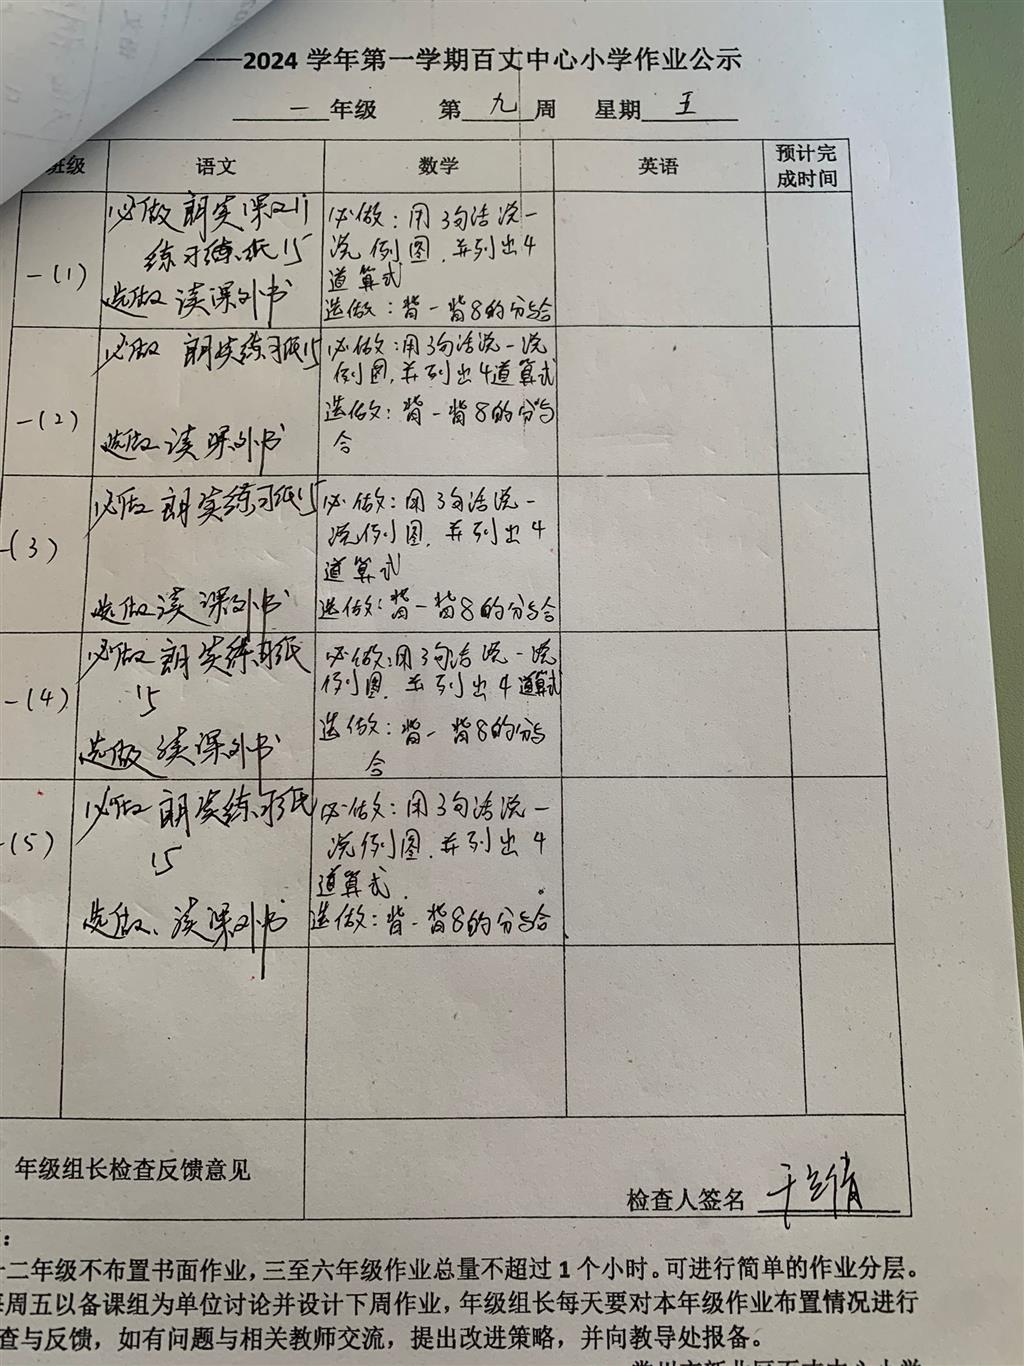 ——2024 学年第一学期百丈中心小学作业公示
一 年级 第 九 周 星期 五
班级 语文 数学 英语 预计完成时间
一(1)
必做 朗读课文11
练习练纸15
选做 读课外书
必做：用3句话说一
说例图，并列出4
道算式
选做：背一背8的分与合
一(2)
必做 朗读练习纸15
选做 读课外书
必做：用3句话说一说
例图，并列出4道算式
选做：背一背8的分与
合
一(3)
必做 朗读练习纸15
选做 读课外书
必做：用3句话说一
说例图，并列出4
道算式
选做：背一背8的分与合
一(4)
必做 朗读练习纸
15
选做 读课外书
必做：用3句话说一说
例图，并列出4道算式
选做：背一背8的分与
合
一(5)
必做 朗读练习纸
15
选做、读课外书
必做：用3句话说一
说例图，并列出4
道算式.
选做：背一背8的分与合
年级组长检查反馈意见
检查人签名
二年级不布置书面作业，三至六年级作业总量不超过 1 个小时。可进行简单的作业分层。
周五以备课组为单位讨论并设计下周作业，年级组长每天要对本年级作业布置情况进行
查与反馈，如有问题与相关教师交流，提出改进策略，并向教导处报备。
常州市新北区百丈中心小学